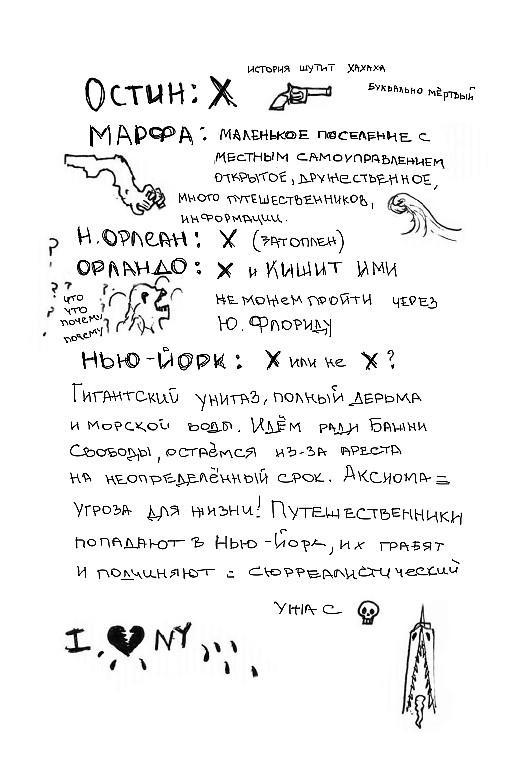 ИСТОРИЯ ШУТИТ ХАХАХА
ОСТИН: X
БУКВАЛЬНО МЁРТВЫЙ
МАРФА: МАЛЕНЬКОЕ ПОСЕЛЕНИЕ С
МЕСТНЫМ САМОУПРАВЛЕНИЕМ
ОТКРЫТОЕ, ДРУЖЕСТВЕННОЕ,
МНОГО ПУТЕШЕСТВЕННИКОВ,
ИНФОРМАЦИИ.
Н. ОРЛЕАН: X (ЗАТОПЛЕН)
ОРЛАНДО: X и КИШИТ ИМИ
НЕ МОЖЕМ ПРОЙТИ ЧЕРЕЗ
Ю. ФЛОРИДУ
? ? ? ?
ЧТО
ЧТО
ПОЧЕМУ
ПОЧЕМУ
НЬЮ-ЙОРК: X ИЛИ НЕ X?
ГИГАНТСКИЙ УНИТАЗ, ПОЛНЫЙ ДЕРЬМА
И МОРСКОЙ ВОДЫ. ИДЁМ РАДИ БАШНИ
СВОБОДЫ, ОСТАЁМСЯ ИЗ-ЗА АРЕСТА
НА НЕОПРЕДЕЛЁННЫЙ СРОК. АКСИОМА =
УГРОЗА ДЛЯ ЖИЗНИ! ПУТЕШЕСТВЕННИКИ
ПОПАДАЮТ В НЬЮ-ЙОРК, ИХ ГРАБЯТ
И ПОДЧИНЯЮТ = СЮРРЕАЛИСТИЧЕСКИЙ
УЖАС
I NY